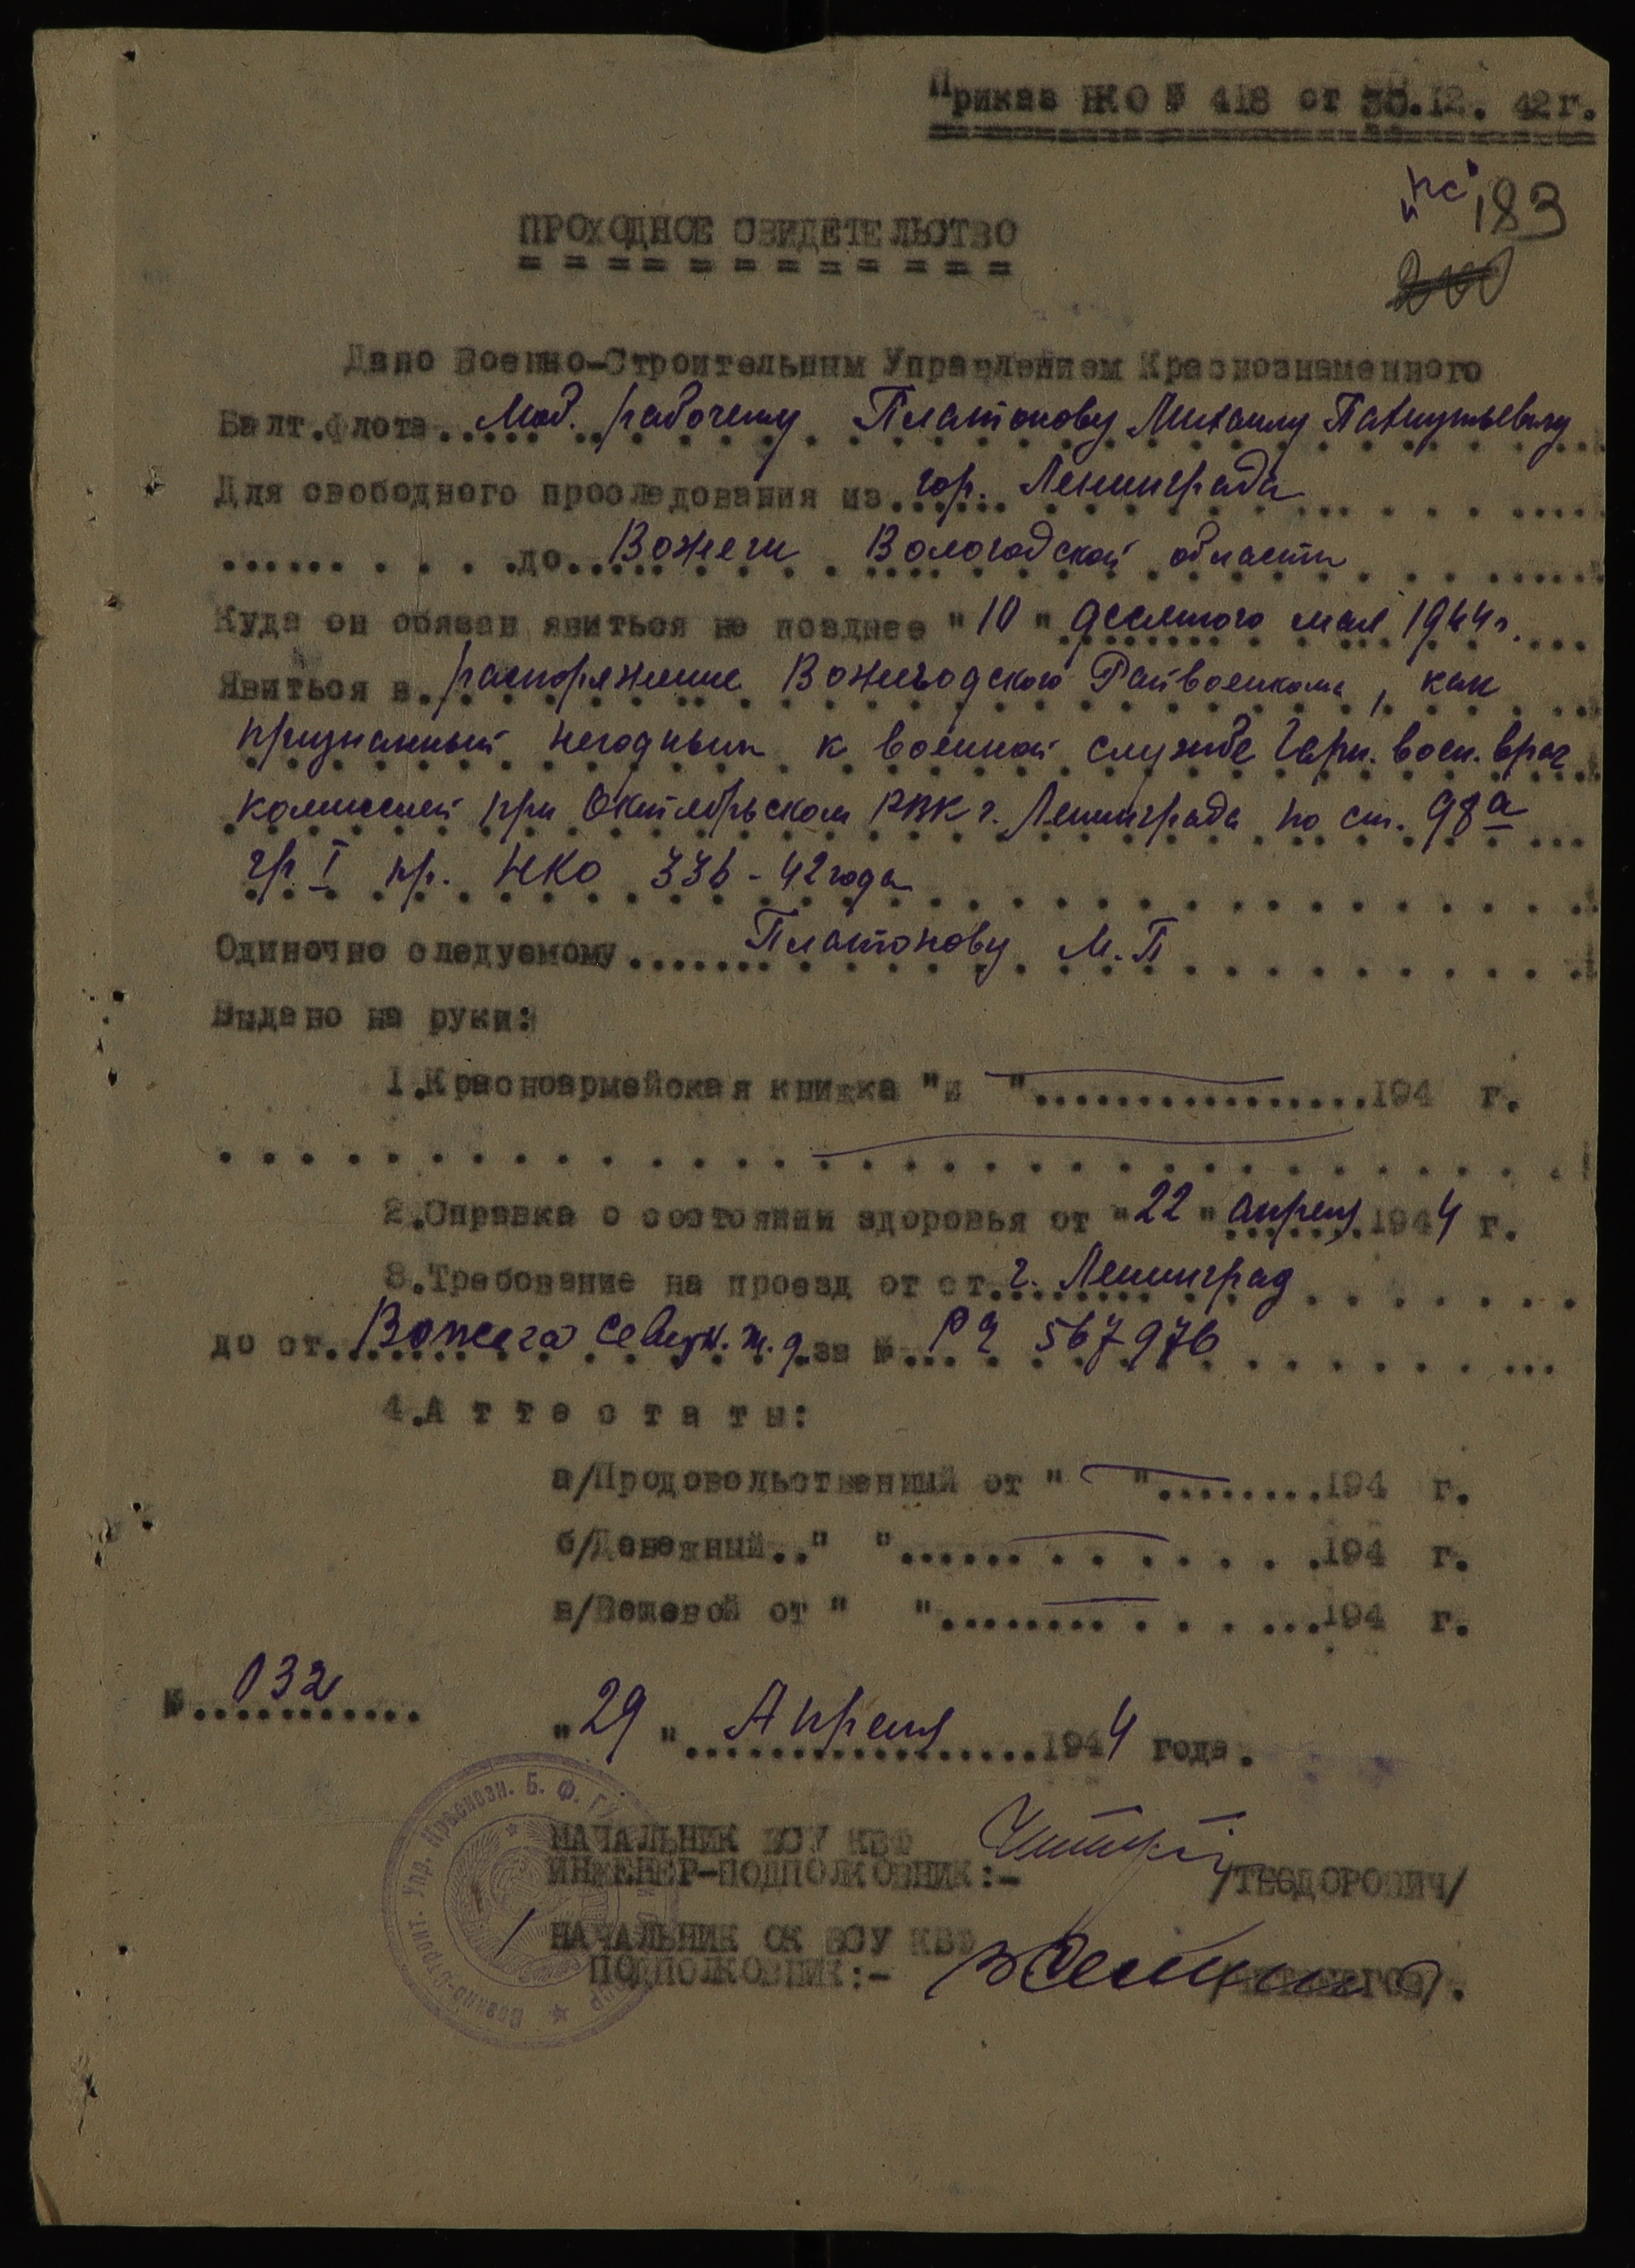 Приказ НКО № 418 от 30.12. 42 г.
"нс" 183
ПРОХОДНОЕ СВИДЕТЕЛЬСТВО
Дано Военно-Строительным Управлением Краснознаменного
Балт.флота Моб. рабочему Платонову Михаилу Пафнутьевичу
Для свободного проследования из гор. Ленинграда
до Вожеги Вологодской области
Куда он обязан явиться не позднее "10" десятого мая 1944 г.
Явиться в распоряжение Вожегодского Райвоенкома, как
признанный негодным к военной службе Гарн. воен. врач
комиссией при Октябрьском РВК г. Ленинграда по ст. 98 а
гр I пр. НКО 336 - 42 года
Одиночно следуемому Платонову М. П
Выдано на руки:
1.Красноармейская книжка "и " 194 г.
2.Справка о состоянии здоровья от "22" апреля 1944 г.
3.Требование на проезд от ст. г. Ленинград
до ст. Вожега Северн. ж. д. за № 567976
4.А т т е с т а т ы:
а/Продовольственный от " " 194 г.
б/Денежный.." " 194 г.
в/Вещевой от " " 194 г.
№ 032
"29" Апреля 1944 года.
НАЧАЛЬНИК ВСУ КБФ
ИНЖЕНЕР-ПОДПОЛКОВНИК:- /ТЕОДОРОВИЧ/
НАЧАЛЬНИК ОК ВСУ КБФ
ПОДПОЛКОВНИК:-
Военно-Строит. Упр. Краснозн. Б. Ф.